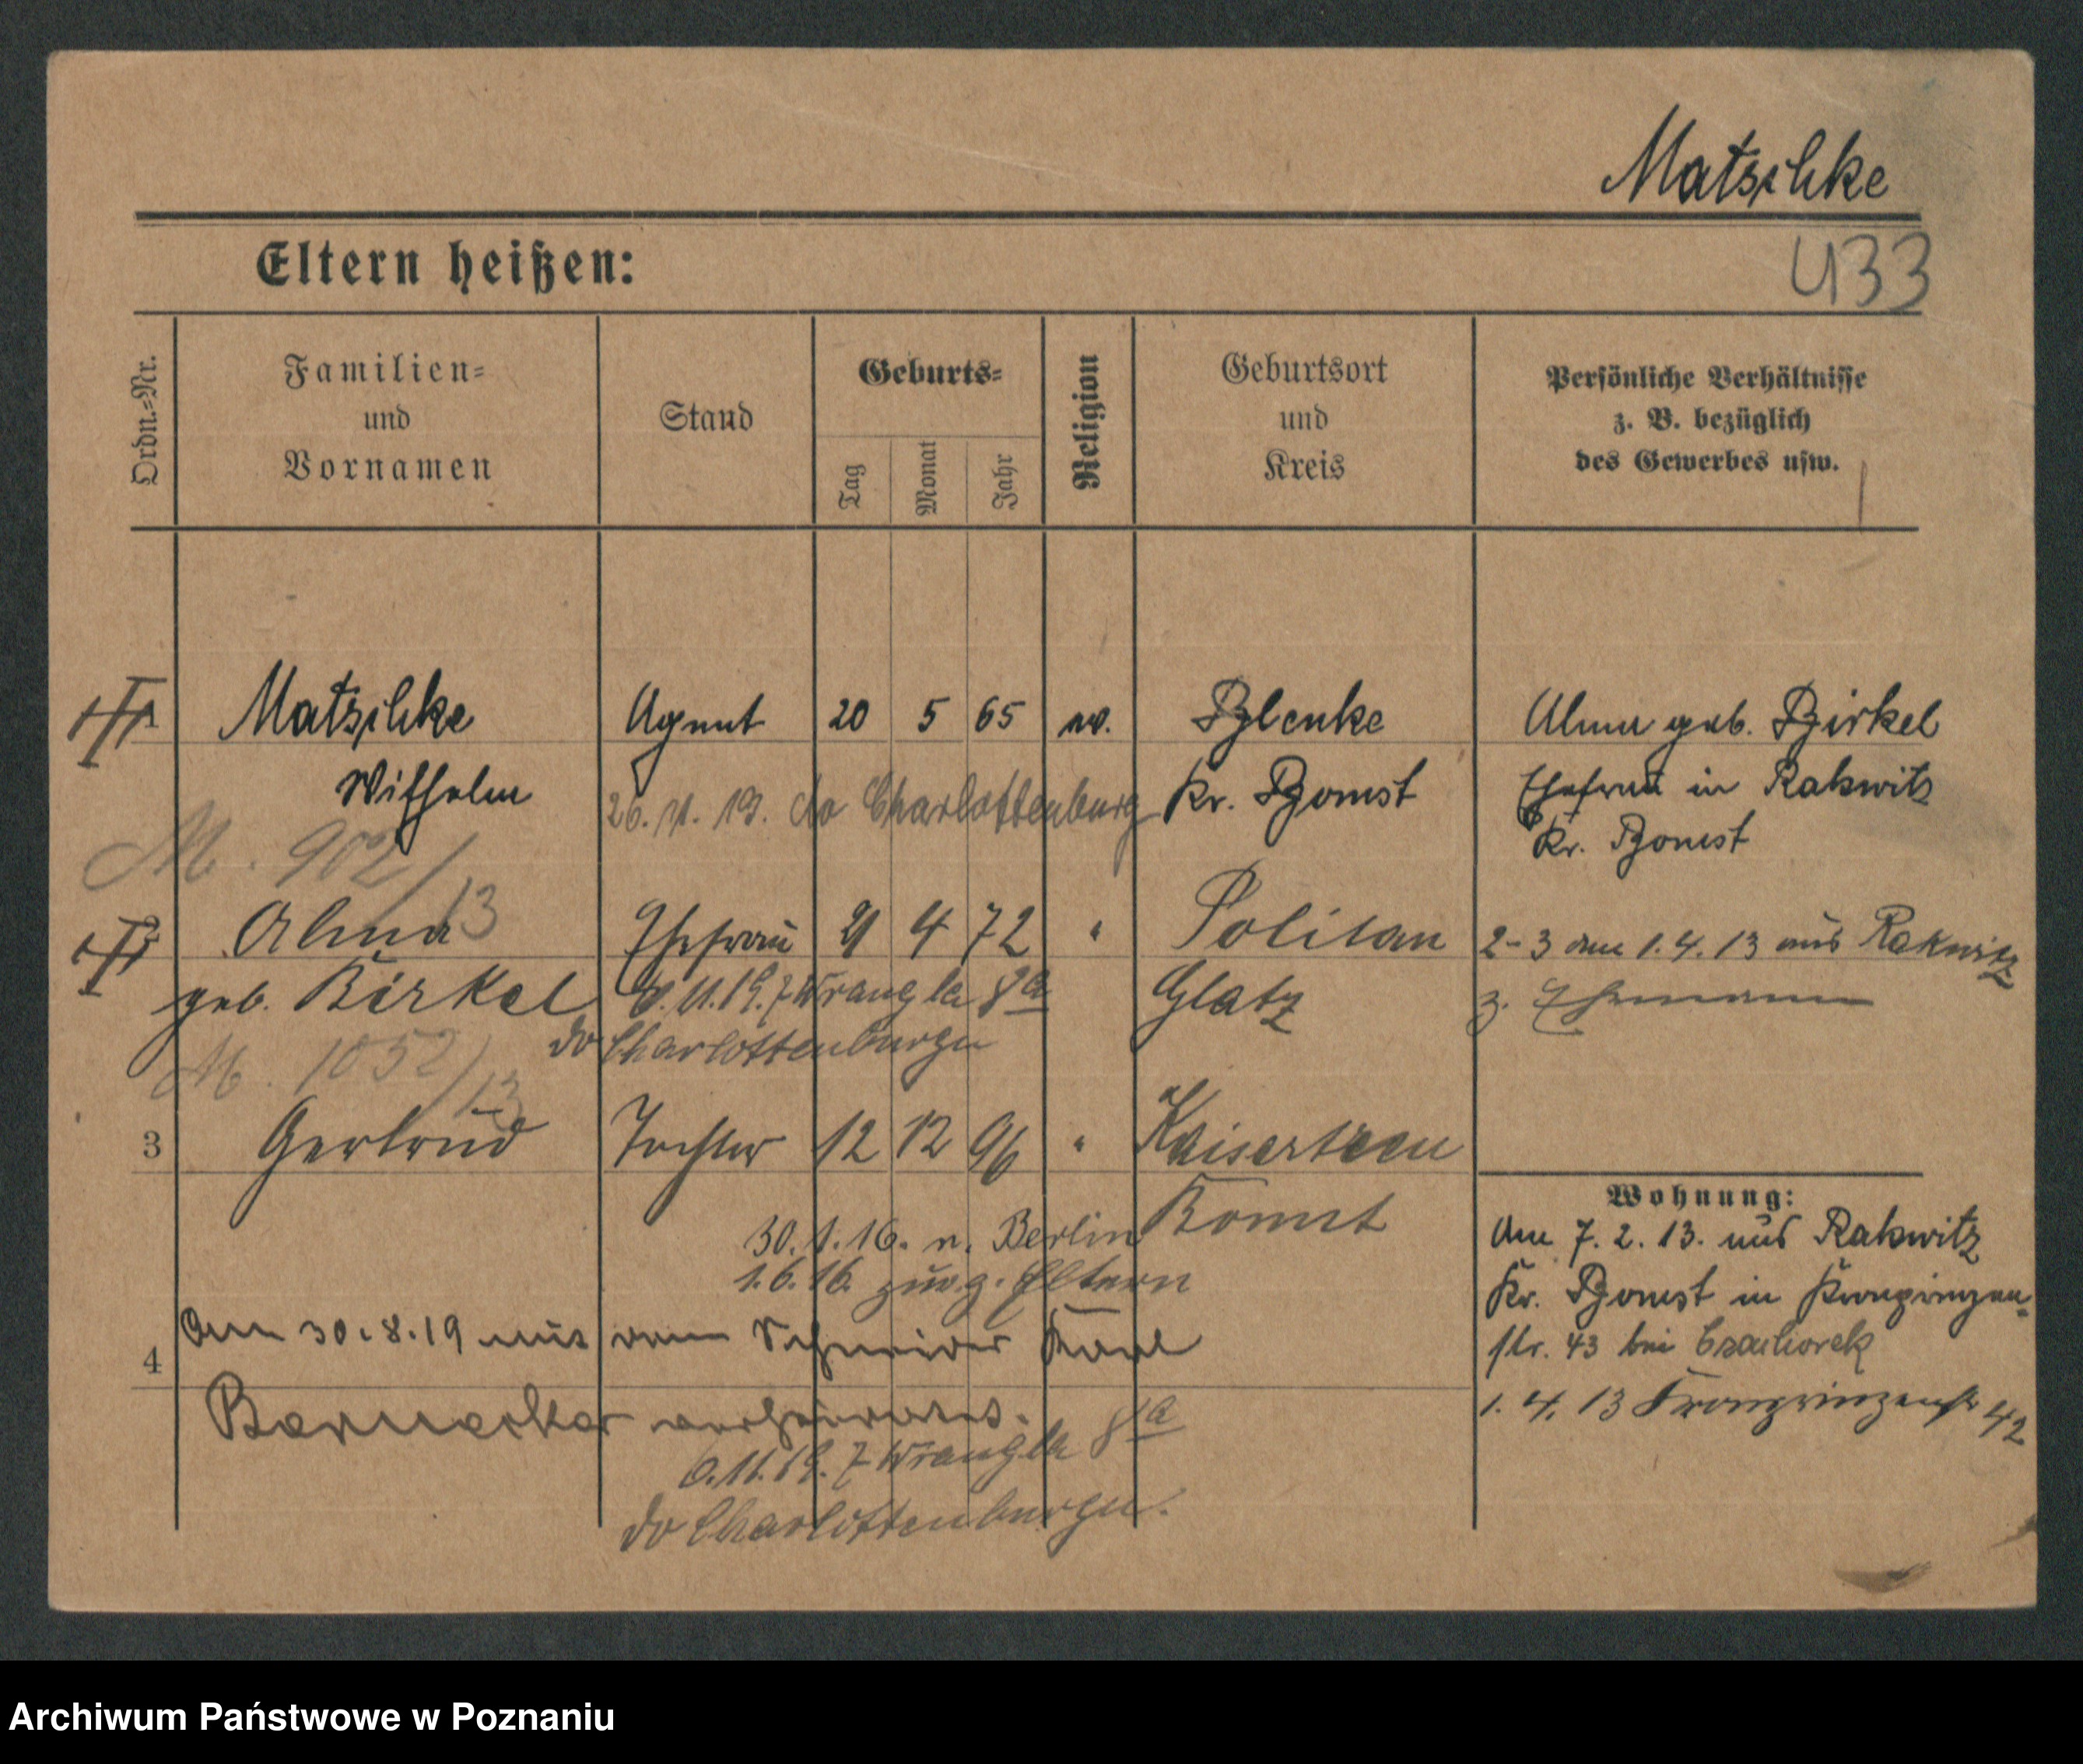 Matschke
433
Eltern heißen:
Ordn.=Nr.
Familien=
und
Vornamen
Stand
Geburts=
Tag
Monat
Jahr
Religion
Geburtsort
und
Kreis
Persönliche Verhältnisse
z. B. bezüglich
des Gewerbes usw.
Matschke Agent 20 5 65 ev. Alma geb. Birkel
Wilhelm Kr. Bomst Ehefrau in Rakwitz
26. 11. 19. do Charlottenburg
Kr. Bomst
M. 902/13
Alma Ehefrau 21 4 72 " 2-3 am 1.4.13 aus Rakwitz
geb. Birkel Glatz z. Ehemann
6.11.19. z Wrangla 8a
do Charlottenburgu
M. 1052/13
3 Gertrud Tochter 12 12 96 " Kaisertreu
Bomst
30.1.16. n. Berlin
1.6.16. zur. z. Eltern
Wohnung:
Am 7.2.13. aus Rakwitz
Kr. Bomst in Kronprinzen-
str. 43 bei
1.4.13 Kronprinzenstr 42
Am 30.8.19 mit dem Schneider Karl
4
verheiratet.
6.11.19. z Wrangla 8a
do Charlottenburgu.
Archiwum Państwowe w Poznaniu